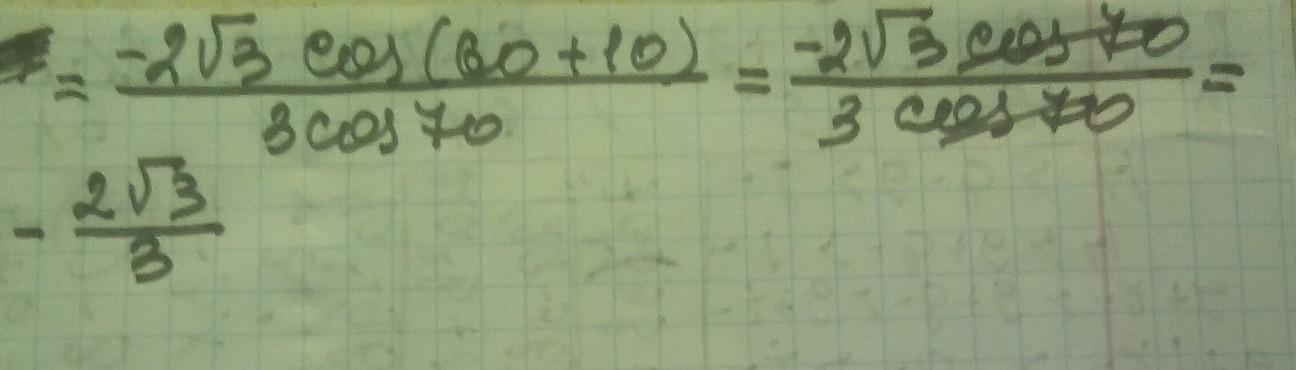 = -2√3 cos(60+10) / 3cos70 = -2√3 cos70 / 3 cos70 =
- 2√3 / 3